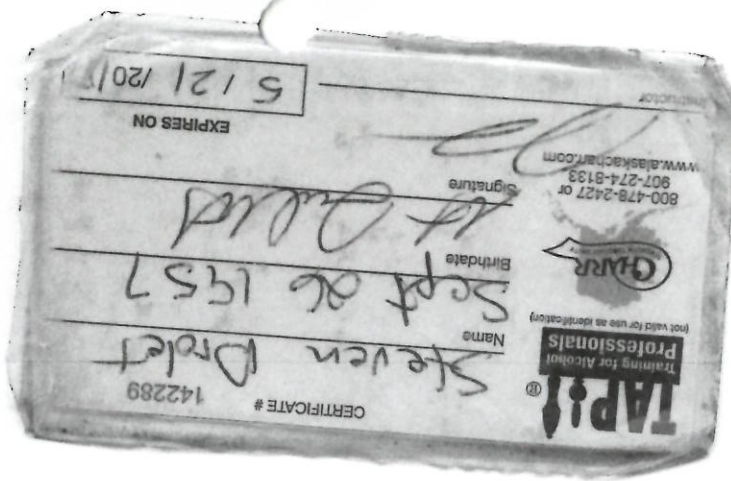 TAP®
Training for Alcohol
Professionals
(not valid for use as identification)
CHARR
800-478-2427 or
907-274-8133
www.alaskacharr.com
CERTIFICATE # 142289
Steven Drolet
Name
Sept 26 1957
Birthdate
Signature
EXPIRES ON
5 / 21 / 20
Instructor